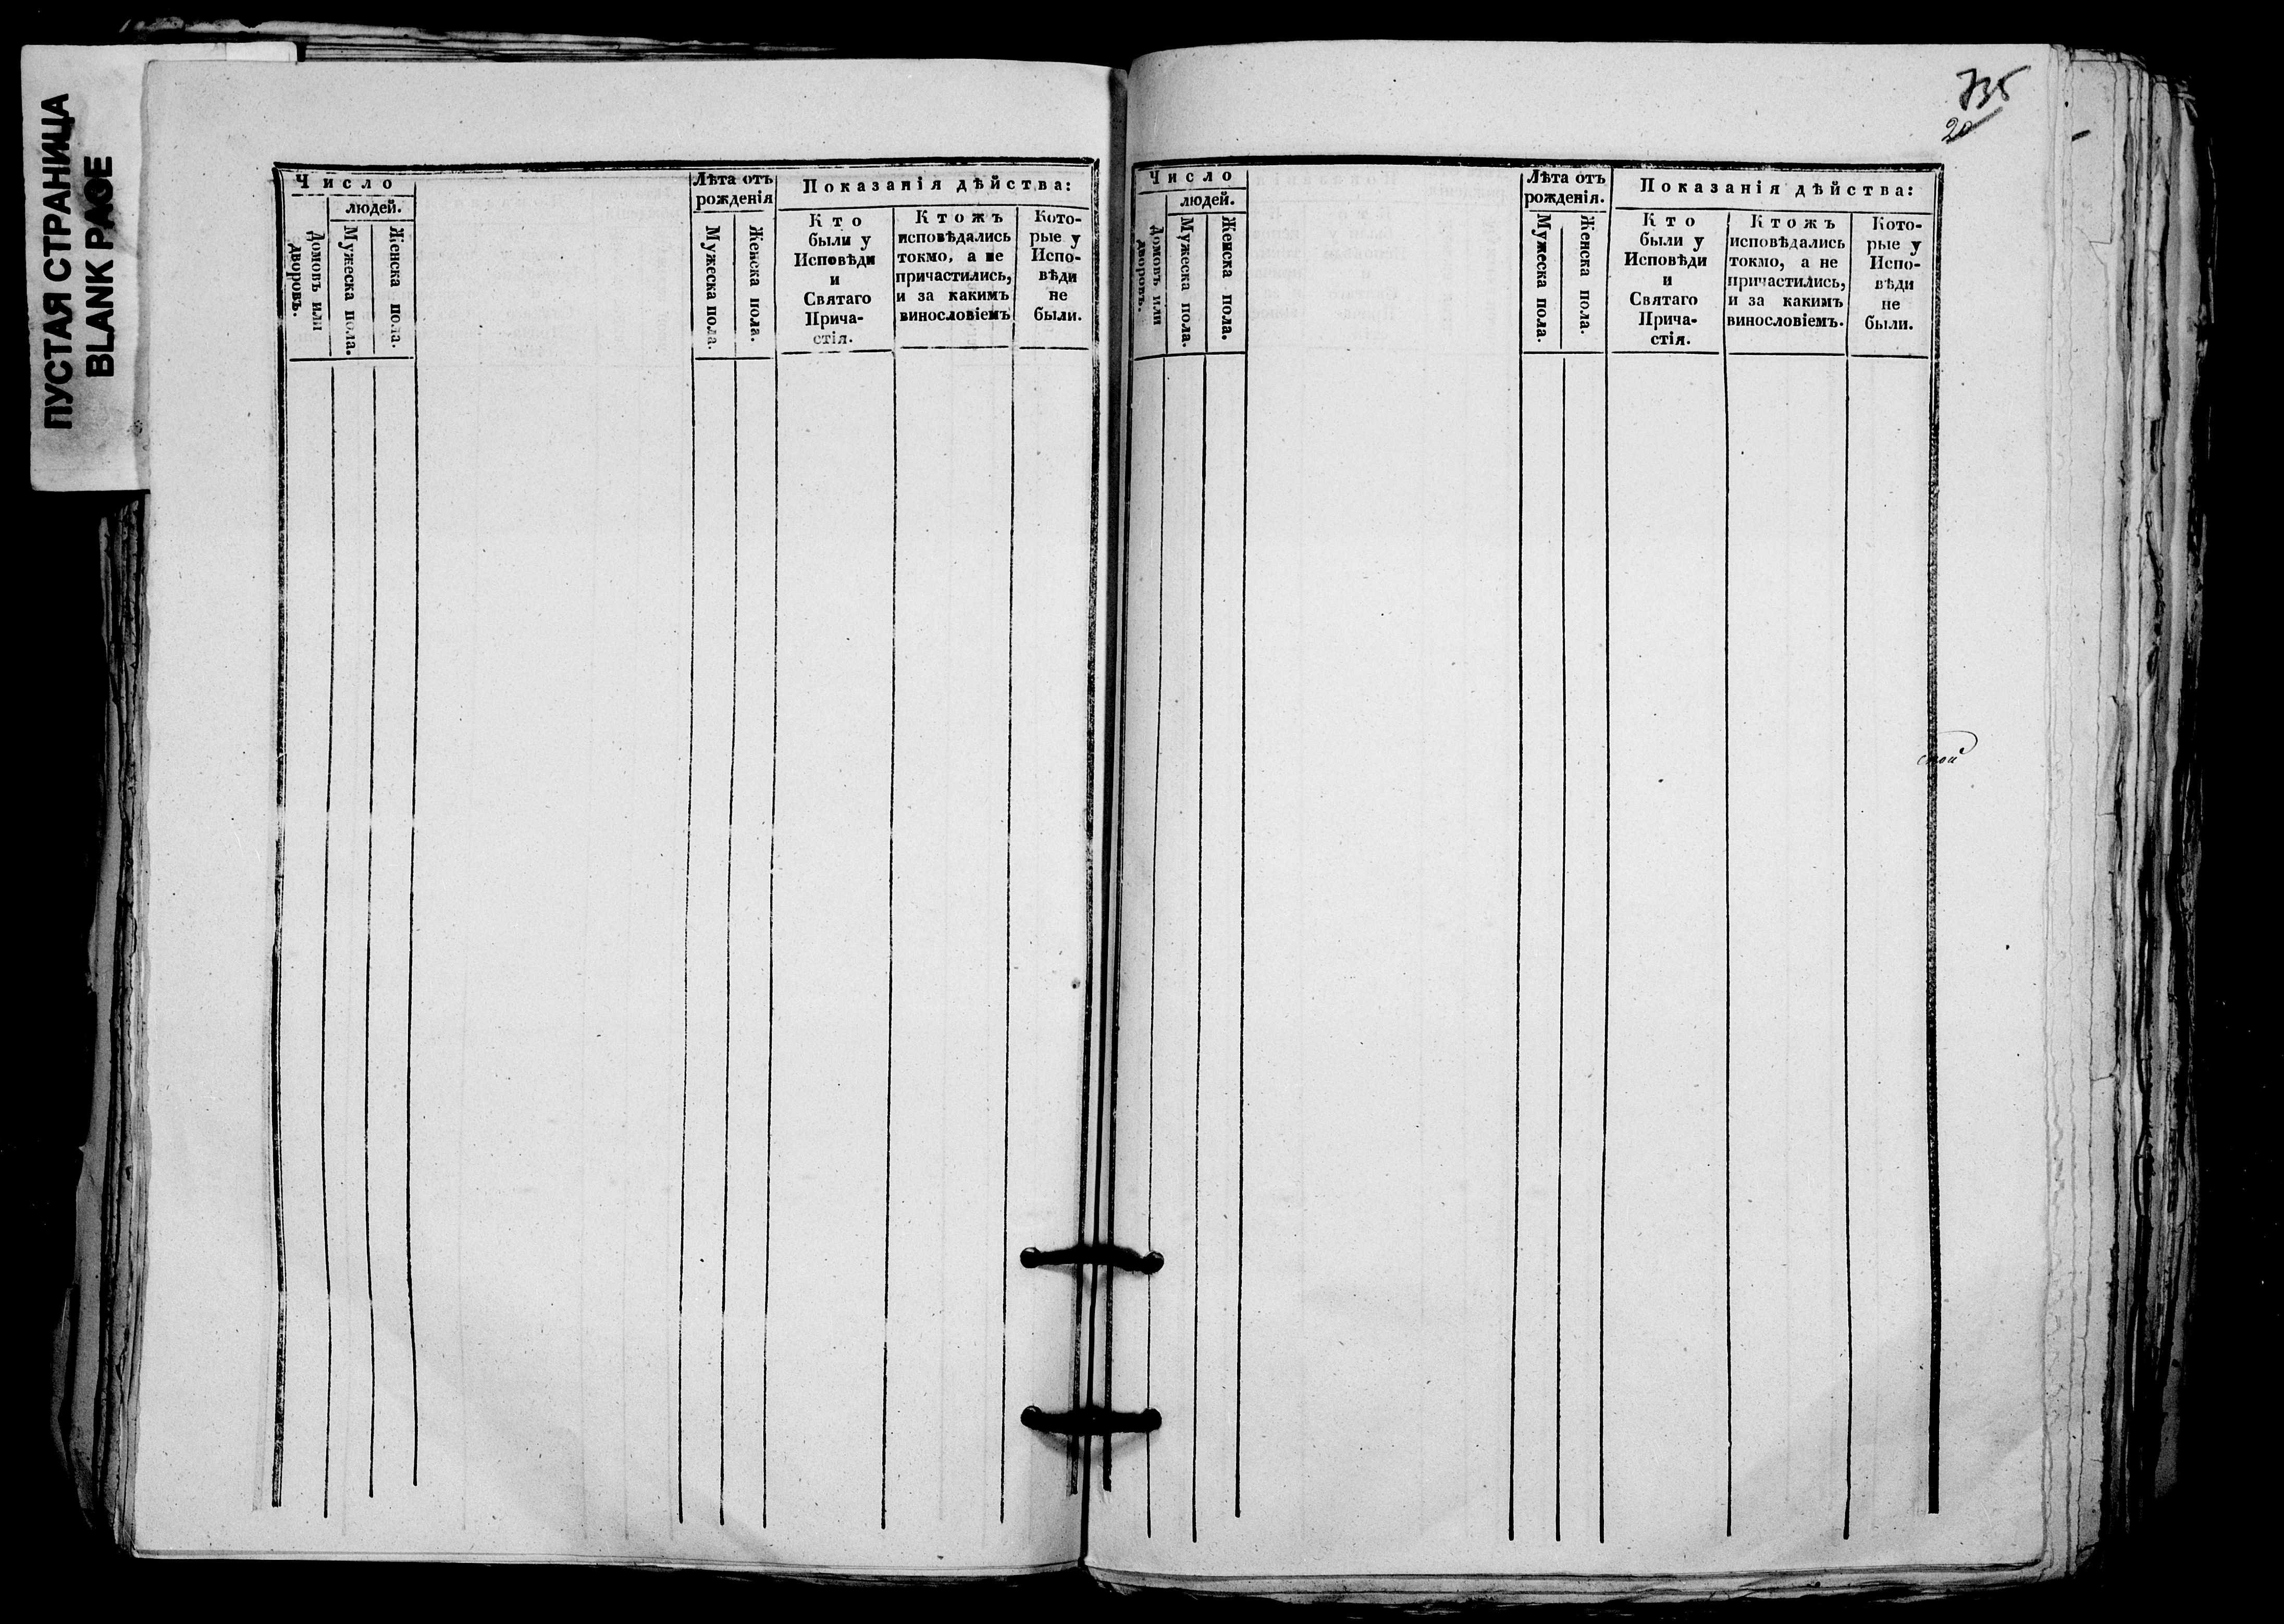 ПУСТАЯ СТРАНИЦА
BLANK PAGE
Число
людей.
Домовъ или
дворовъ.
Мужеска пола.
Женска пола.
Лѣта отъ
рожденія
Мужеска пола.
Женска пола.
Показанія дѣйства:
Кто
были у
Исповѣди
и
Святаго
Прича-
стія.
Ктожъ
исповѣдались
токмо, а не
причастились,
и за какимъ
винословіемъ
Кото-
рые у
Испо-
вѣди
не
были.
735
20
Число
людей.
Домовъ или
дворовъ.
Мужеска пола.
Женска пола.
Лѣта отъ
рожденія.
Мужеска пола.
Женска пола.
Показанія дѣйства:
Кто
были у
Исповѣди
и
Святаго
Прича-
стія.
Ктожъ
исповѣдались
токмо, а не
причастились,
и за какимъ
винословіемъ.
Кото-
рые у
Испо-
вѣди
не
были.